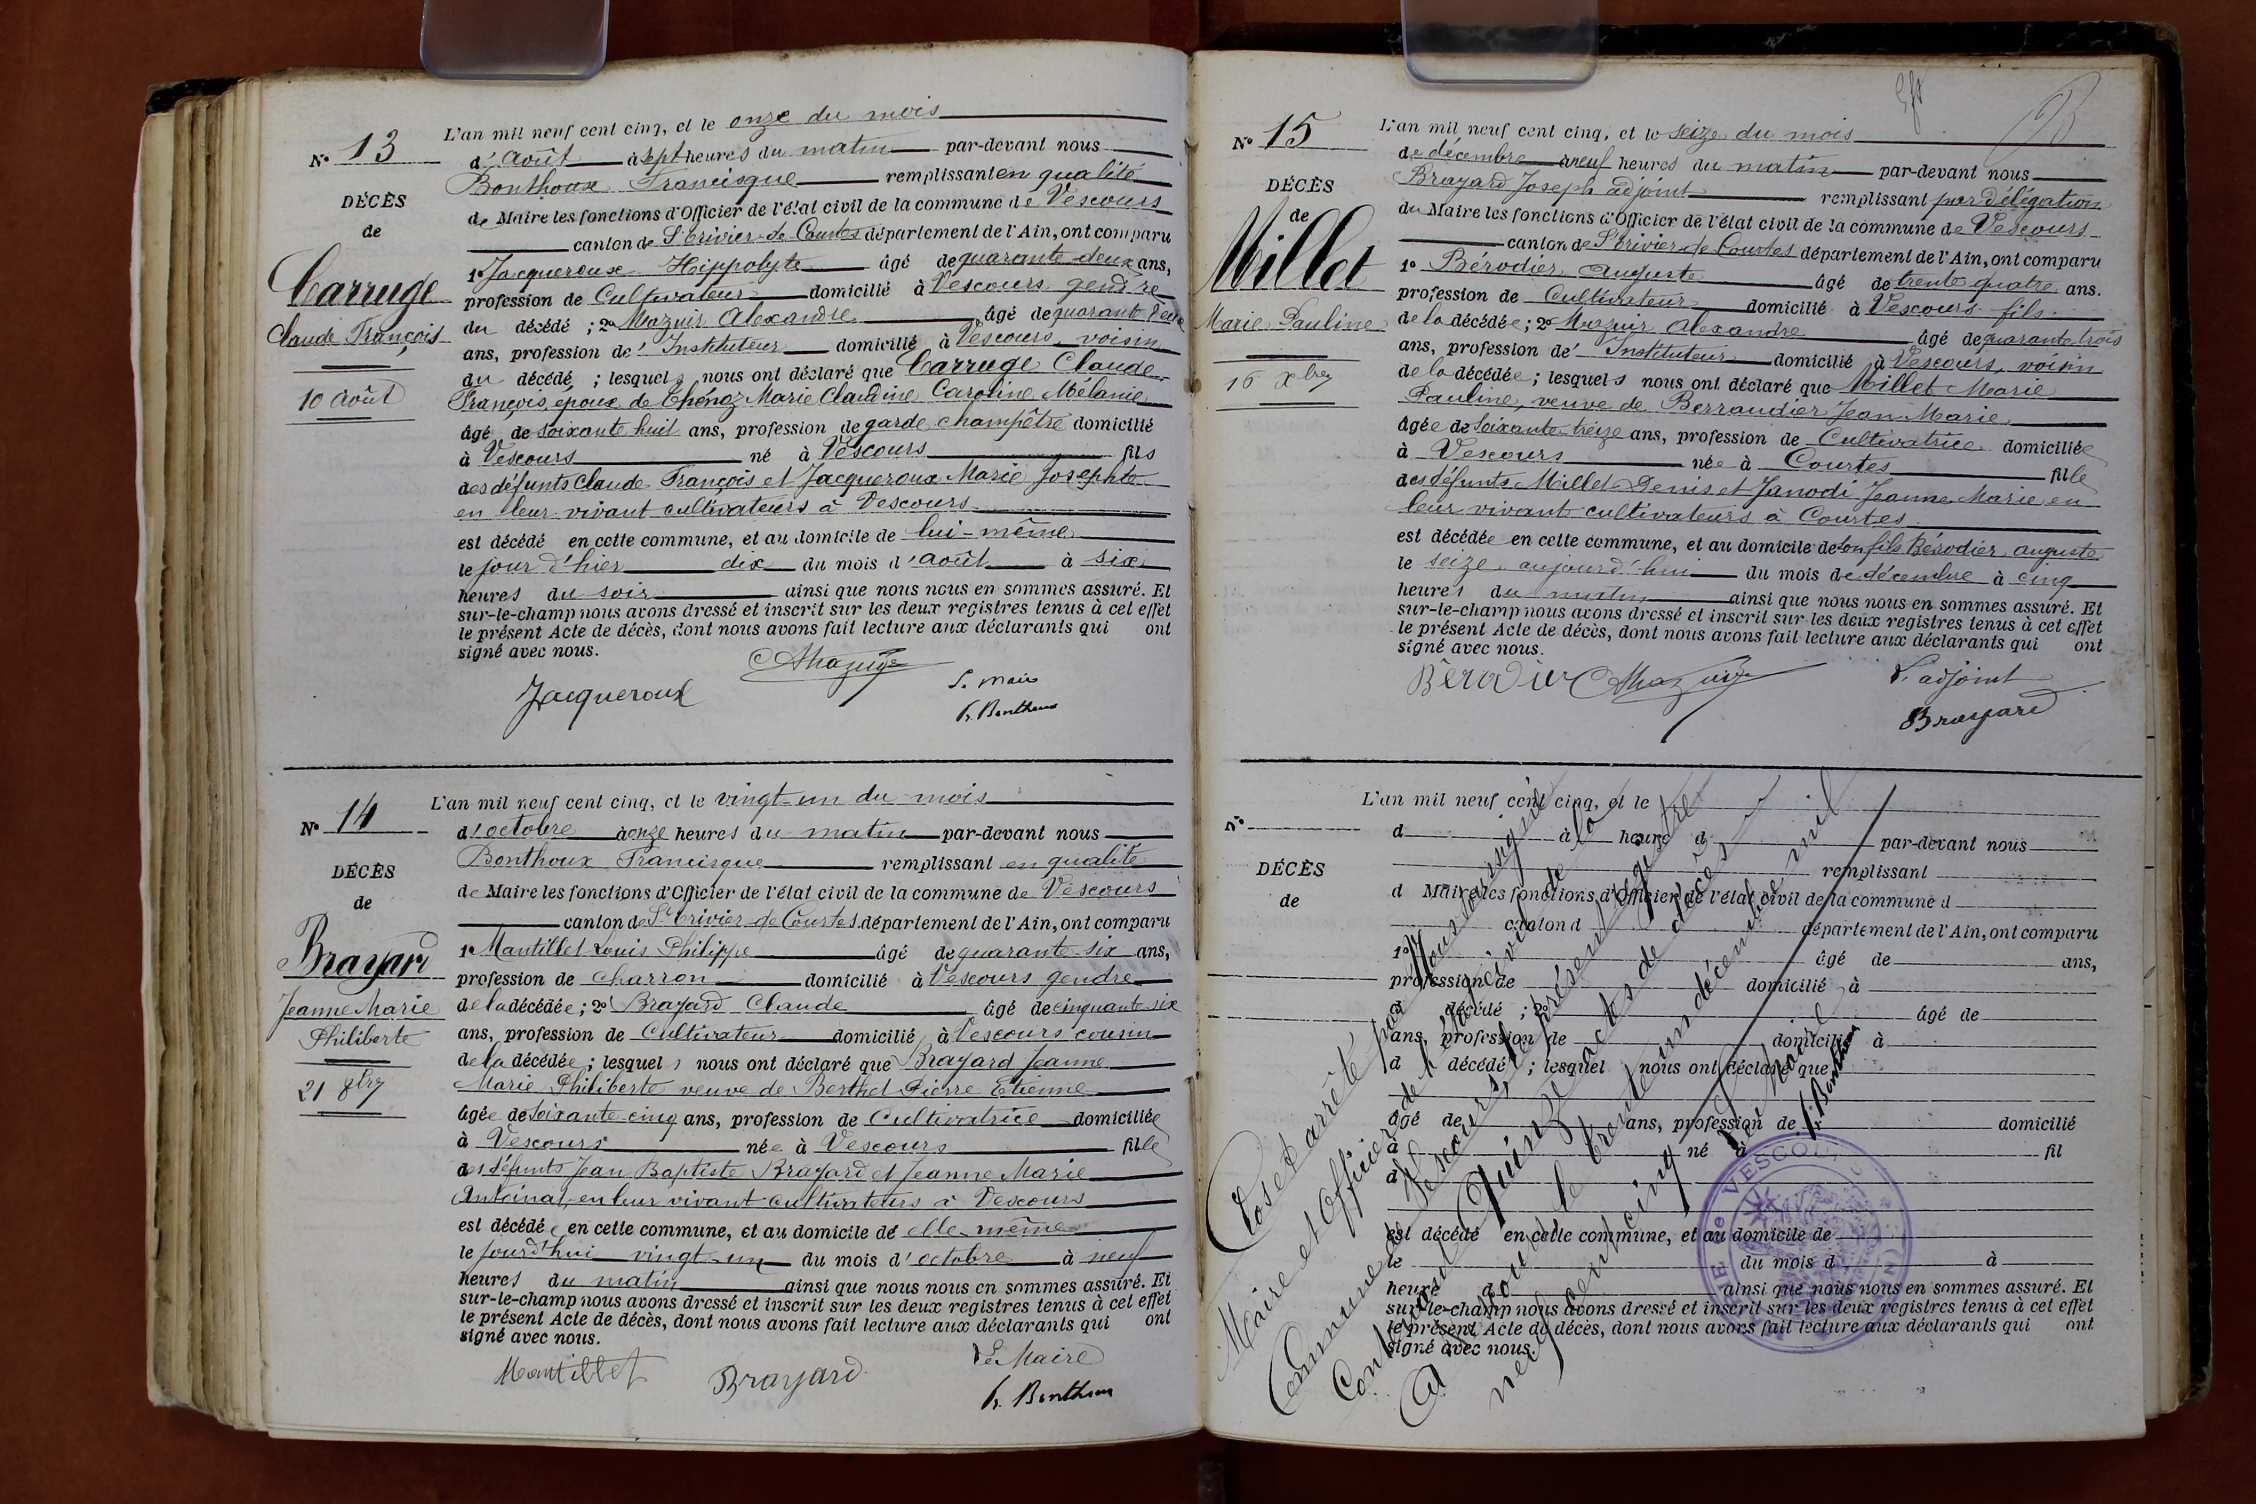 N° 13
DÉCÈS
de
Carruge
Claude François
10 Août
L'an mil neuf cent cinq, et le onze du mois
d'Août à sept heures du matin par-devant nous
Bonthoux Francisque remplissant en qualité
de Maire les fonctions d'Officier de l'état civil de la commune de Vescours
canton de St Trivier-de-Courtes département de l'Ain, ont comparu
1° Jacqueroux Hippolyte âgé de quarante-deux ans,
profession de Cultivateur domicilié à Vescours gendre
du décédé ; 2° Mazuir Alexandre âgé de quarante deux
ans, profession d' Instituteur domicilié à Vescours, voisin
du décédé ; lesquels nous ont déclaré que Carruge Claude
François, époux de Thenoz Marie Claudine Caroline Mélanie
âgé de soixante huit ans, profession de garde champêtre domicilié
à Vescours né à Vescours fils
des défunts Claude François et Jacqueroux Marie Josephte
en leur vivant cultivateurs à Vescours
est décédé en cette commune, et au domicile de lui-même
le jour d'hier dix du mois d'août à six
heures du soir ainsi que nous nous en sommes assuré. Et
sur-le-champ nous avons dressé et inscrit sur les deux registres tenus à cet effet
le présent Acte de décès, dont nous avons fait lecture aux déclarants qui ont
signé avec nous.
AMazuir
Jacqueroux
Le Maire
F. Bonthoux
N° 14
DÉCÈS
de
Brayard
Jeanne Marie
Philiberte
21 8bre
L'an mil neuf cent cinq, et le vingt-un du mois
d'octobre à onze heures du matin par-devant nous
Bonthoux Francisque remplissant en qualité
de Maire les fonctions d'Officier de l'état civil de la commune de Vescours
canton de St Trivier-de-Courtes département de l'Ain, ont comparu
1° Mantillet Louis Philippe âgé de quarante-six ans,
profession de charron domicilié à Vescours gendre
de la décédée ; 2° Brayard Claude âgé de cinquante six
ans, profession de Cultivateur domicilié à Vescours cousin
de la décédée ; lesquels nous ont déclaré que Brayard Jeanne
Marie Philiberte veuve de Berthet Pierre Etienne
âgée de soixante cinq ans, profession de Cultivatrice domiciliée
à Vescours née à Vescours fille
des défunts Jean Baptiste Brayard et Jeanne Marie
Antoinat, en leur vivant cultivateurs à Vescours
est décédée en cette commune, et au domicile de elle-même
le jourd'hui vingt-un du mois d'octobre à neuf
heures du matin ainsi que nous nous en sommes assuré. Et
sur-le-champ nous avons dressé et inscrit sur les deux registres tenus à cet effet
le présent Acte de décès, dont nous avons fait lecture aux déclarants qui ont
signé avec nous.
Mantillet
Brayard
Le Maire
F. Bonthoux
N° 15
DÉCÈS
de
Millet
Marie Pauline
16 xbre
L'an mil neuf cent cinq, et le seize du mois
de décembre à neuf heures du matin par-devant nous
Brayard Joseph adjoint remplissant par délégation
du Maire les fonctions d'Officier de l'état civil de la commune de Vescours
canton de St Trivier-de-Courtes département de l'Ain, ont comparu
1° Bérodier Auguste âgé de trente quatre ans.
profession de Cultivateur domicilié à Vescours fils
de la décédée ; 2° Mazuir Alexandre âgé de quarante trois
ans, profession d' Instituteur domicilié à Vescours, voisin
de la décédée ; lesquels nous ont déclaré que Millet Marie
Pauline, veuve de Berraudier Jean Marie
âgée de soixante-treize ans, profession de Cultivatrice domiciliée
à Vescours née à Courtes fille
des défunts Millet Denis et Janodi Jeanne Marie en
leur vivant cultivateurs à Courtes
est décédée en cette commune, et au domicile de son fils Bérodier auguste
le seize aujourd'hui du mois de décembre à cinq
heures du matin ainsi que nous nous en sommes assuré. Et
sur-le-champ nous avons dressé et inscrit sur les deux registres tenus à cet effet
le présent Acte de décès, dont nous avons fait lecture aux déclarants qui ont
signé avec nous.
Bérodier
AMazuir
L'adjoint
Brayard
N°
DÉCÈS
de
L'an mil neuf cent cinq, et le
d à heure d par-devant nous
remplissant
d Maire les fonctions d'Officier de l'état civil de la commune d
canton d département de l'Ain, ont comparu
1° âgé de ans,
profession de domicilié à
d décédé ; 2° âgé de
ans, profession de domicilié à
d décédé ; lesquel nous ont déclaré que
âgé de ans, profession de domicilié
à né à fil
d
est décédé en cette commune, et au domicile de
le du mois d à
heure d ainsi que nous nous en sommes assuré. Et
sur-le-champ nous avons dressé et inscrit sur les deux registres tenus à cet effet
le présent Acte de décès, dont nous avons fait lecture aux déclarants qui ont
signé avec nous.
Clos et arrêté par Nous soussigné
Maire et Officier de l'état civil de la
Commune de Vescours, le présent registre
Contenant Quinze actes de décès
A Vescours le trente un décembre mil
neuf cent cinq
Le Maire
F. Bonthoux
VESCOURS